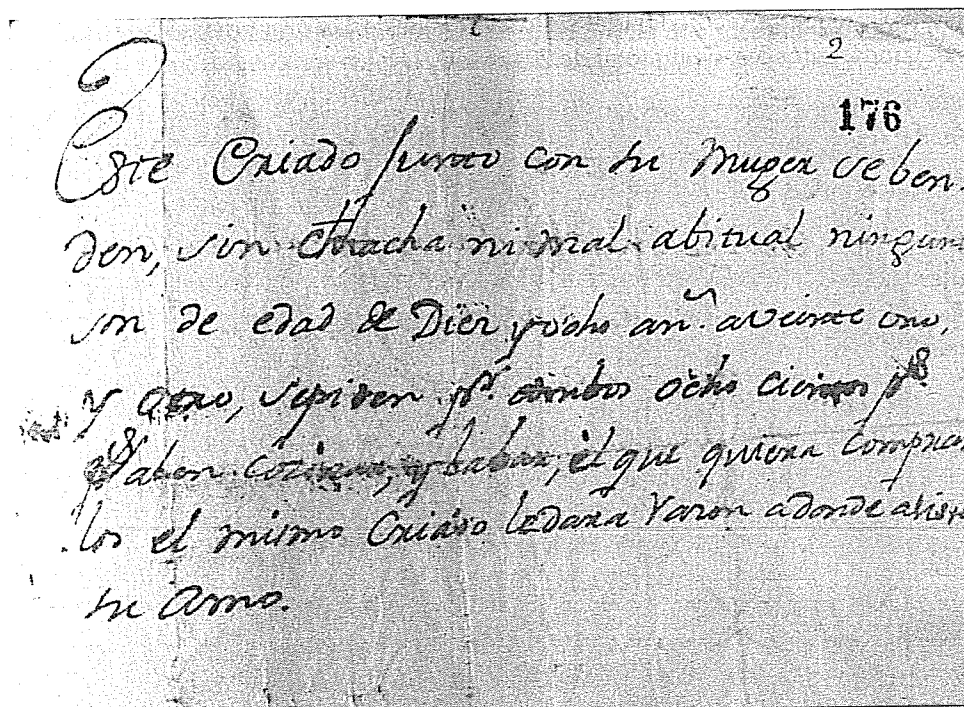 2
176
Este Criado Junto con su Muger se ben-
den, sin thacha ni mal abitual ningun
son de edad de Diez y ocho añ.s a veinte uno,
y otro, se piden p.r ambos ocho cientos p.s
saben Cozinar, y labar, el que quiera Comprar
los el mismo Criado le dara razon adonde asiste
su Amo.